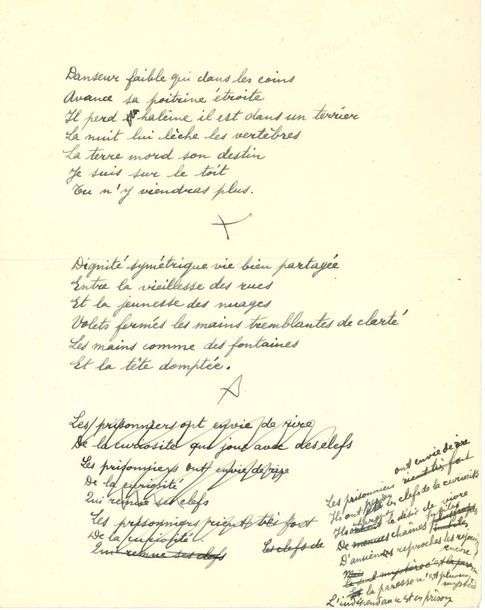 Danseur faible qui dans les coins
Avance sa poitrine étroite
Il perd haleine il est dans un terrier
La nuit lui lèche les vertèbres
La terre mord son destin
Je suis sur le toit
Tu n'y viendras plus.
Dignité symétrique vie bien partagée
Entre la vieillesse des rues
Et la jeunesse des nuages
Volets fermés les mains tremblantes de clarté
Les mains comme des fontaines
Et la tête domptée.
Les prisonniers ont envie de rire
De la curiosité qui joue avec des clefs
Les prisonniers ont envie de rire
De la curiosité
Qui remue ses clefs
Les prisonniers rient très fort
De la curiosité
Qui remue ses clefs Les clefs de
ont envie de rire
Les prisonniers rient très fort
Ils ont les clefs de la curiosité
le désir de vivre
De chaînes
D'anciens reproches les
encore
la paresse n'est plus un mystère
L'indépendance est en prison